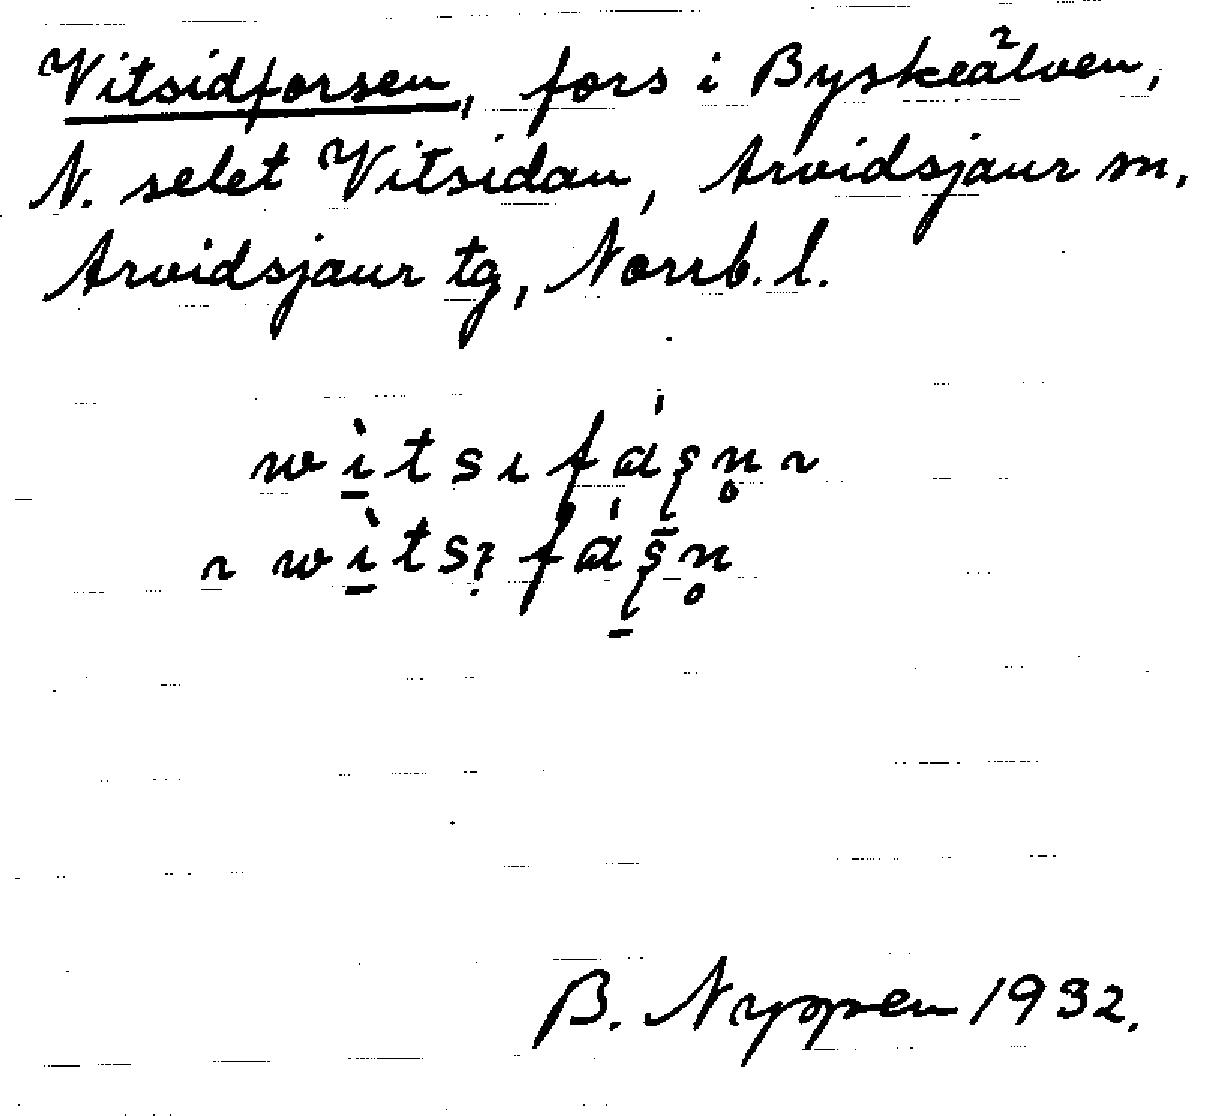 Vitsidforsen, fors i Byskeälven,
N. selet Vitsidan, Arvidsjaur sn,
Arvidsjaur tg, Norrb. l.
B. Nyppen 1932.